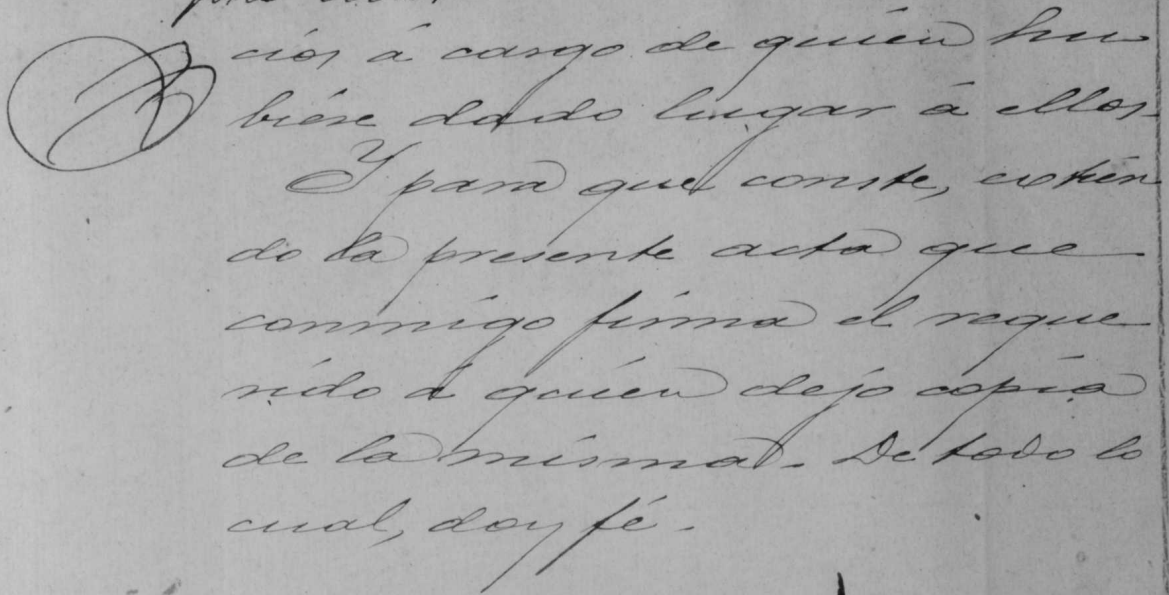 cios á cargo de quién hu
biére dado lugar á ellos.
Y para que conste, extién
do la presente acta que
conmigo firma el reque
rido á quién dejo copia
de la misma. De todo lo
cual, doy fé.